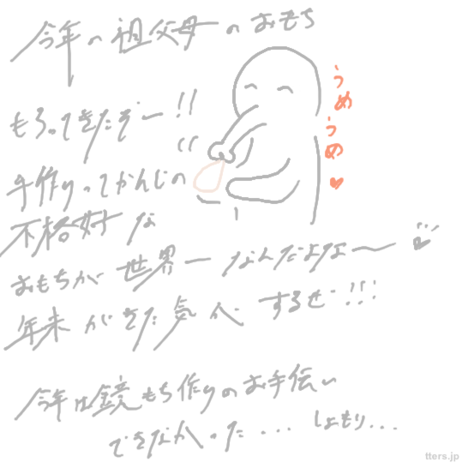 今年の祖父母のおもち
もろってきたぞー!!
うめ
うめ♥
手作りってかんじの
不格好な
おもちが世界一なんだよな〜♥
年末がきた気がするぜ!!!
今年は鏡もち作りのお手伝い
できなかった...しょもり...
tters.jp